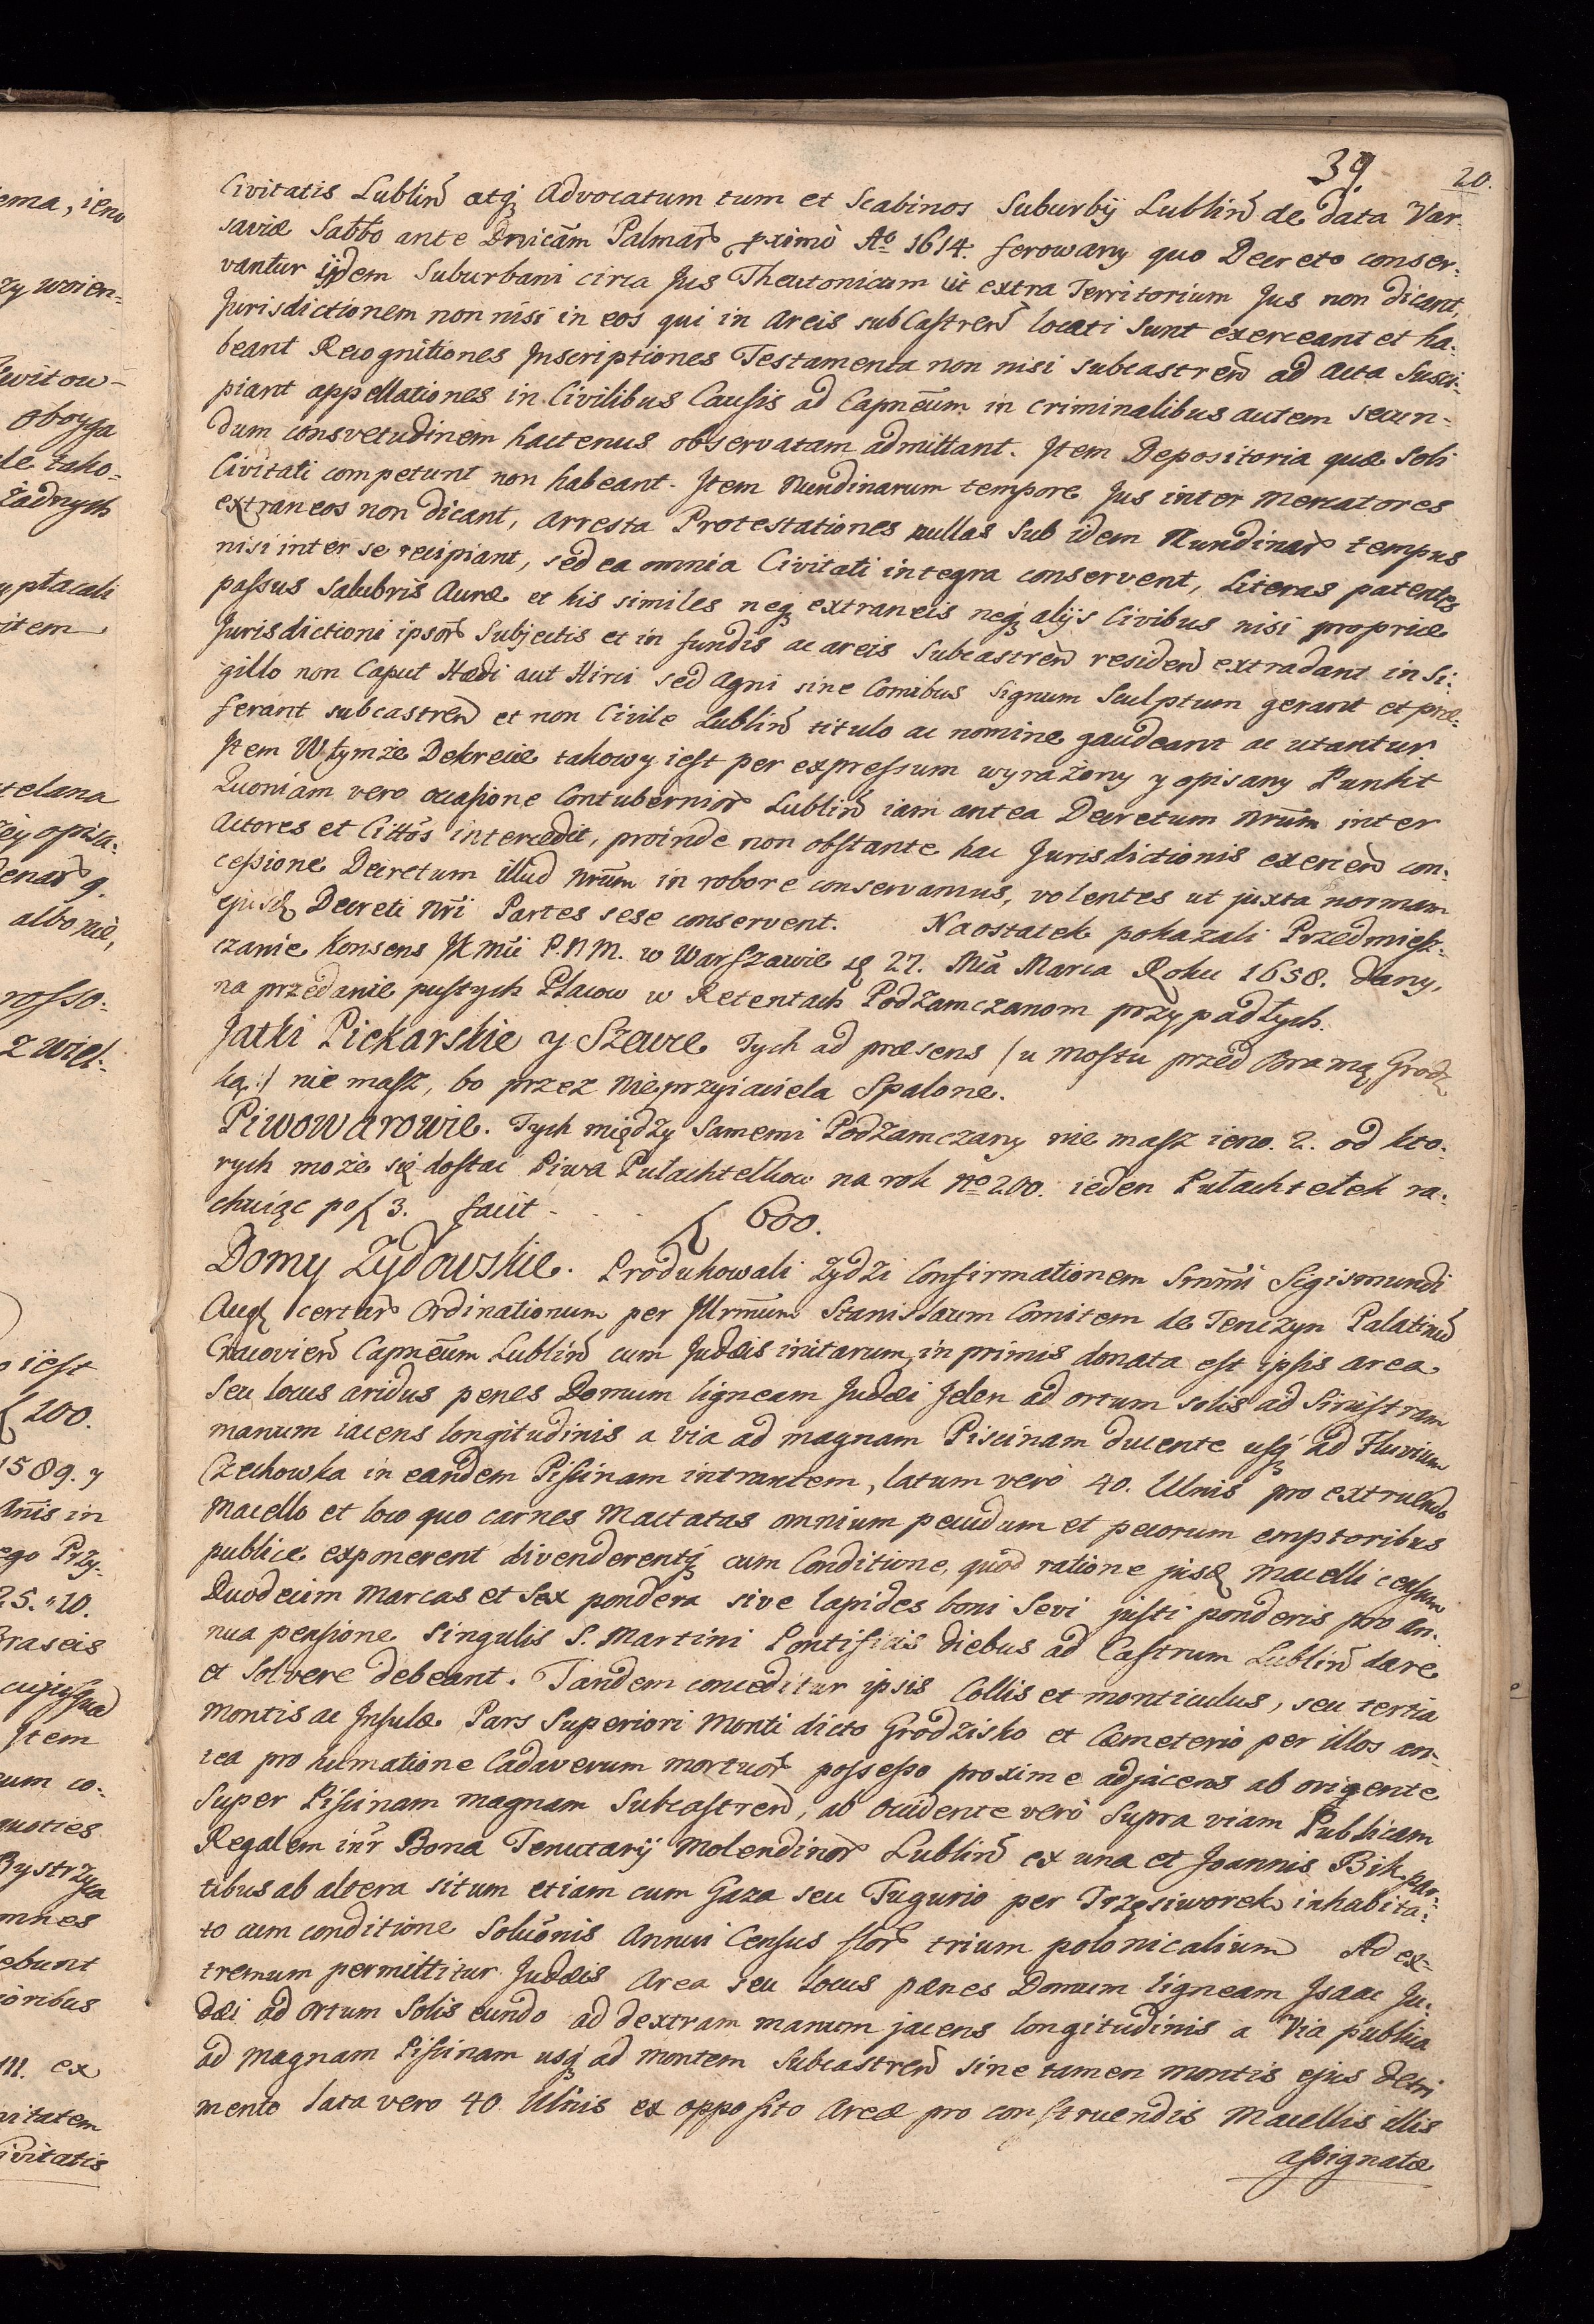 39. 20.
Civitatis Lublin̄ atq̨ Advocatum tum et Scabinos Suburbij Lublin̄ de data Var-
saviæ Sabbo ante Dnicam Palmar̄ pximo Ao 1614. ferowany quo Decreto conser-
vantur ijdem Suburbani circa Jus Theutonicum ut extra Territorium Jus non dicant,
Jurisdictionem non nisi in eos qui in Areis subCastren̄ locati sunt exerceant et ha-
beant Recognitiones Inscriptiones Testamenta non nisi subcastren̄ ad Acta Susci-
piant appellationes in Civilibus Causis ad Capneum in criminalibus autem secun-
dum consvetudinem hactenus observatam admittant. Item Depositoria quæ soli
Civitati competunt non habeant. Item Nundinarum tempore Jus inter Mercatores
extraneos non dicant, Arresta Protestationes nullas Sub idem Nundinar̄ tempus
nisi inter se recipiant, sed ea omnia Civitati integra conservent, Literas patentes
passus salubris Auræ et his similes neq̨ extraneis neq̨ alijs Civibus nisi propriæ
Jurisdictioni ipsor̄ Subjectis et in fundis ac areis Subcastren̄ residen̄ extradant in Si-
gillo non Caput Hædi aut Hirci sed Agni sine Cornibus Signum Sculptum gerant et præ-
ferant subcastren̄ et non Civile Lublin̄ titulo ac nomine gaudeant ac utantur
Item W tymże Dekrecie takowy iest per expressum wyrażony y opisany Punkt
Quoniam vero occasione Contubernior̄ Lublin̄ iam antea Decretum Nrum inter
Actores et Cittos intercedit, proinde non obstante hac Jurisdictionis exercen̄ con-
cessione Decretum illud Nrum in robore conservamus, volentes ut juxta normam
ejusd Decreti Nri Partes sese conservent. Naostatek pokazali Przedmiesz-
czanie Konsens JK Mci P.N.M. w Warszawie d 27. Mca Marca Roku 1658. dany,
na przedanie pustych Placow w Retentach Podzamczanom przypadłych.
Jatki Piekarskie y Szewce Tych ad præsens (u mostu przed Bramą Grodz
ką:) nie masz, bo przez Nieprzyiaciela Spalone.
Piwowarowie. Tych między Samemi Podzamczany nie masz ieno. 2. od kto-
rych może się dostac Piwa Pułachtelkow na rok No 200. ieden Pułachtelek ra-
chuiąc po f 3. facit - . . . f 600.
Domy Zydowskie. Produkowali Zydzi Confirmationem Srmi Sigismundi
Aug certar̄ Ordinationum per Illrmum Stanislaum Comitem de Tenczyn Palatinu
Cracovien̄ Capneum Lublin̄ cum Judæis initarum, in primis donata est ipsis area
seu locus aridus penes Domum ligneam Judæi Jelen ad ortum solis ad Sinistram
manum iacens longitudinis a via ad magnam Piscinam ducente usq̨ ad Fluvium
Czechowka in eandem Piscinam intrantem, latum vero 40. Ulnis pro extruendo
Macello et loco quo carnes Mactatas omnium pecudum et pecorum emptoribus
publice exponerent divenderentq̨ cum Conditione, quod ratione jusd Macelli censum
Duodecim Marcas et Sex pondera sive lapides boni Sevi justi ponderis pro An-
nua pensione singulis S. Martini Pontificis diebus ad Castrum Lublin̄ dare
et Solvere debeant. Tandem conceditur ipsis Collis et monticulus, seu tertia
Montis ac Insulæ Pars Superiori Monti dicto Grodzisko et Cæmeterio per illos an-
tea pro humatione Cadaverum mortuor̄ possesso proxime adjacens ab origente
Super Piscinam magnam Subcastren̄, ab Occidente vero Supra viam Publicam
Regalem inr Bona Tenutarij Molendinor̄ Lublin̄ ex una et Joannis Bik par-
tibus ab altera situm etiam cum Gaza seu Tugurio per Trzęsiworek inhabita-
to cum conditione Solucōnis Annui Census flor̄ trium polonicalium Ad ex-
tremum permittitur Judæis Area seu locus pænes Domum ligneam Isaac Ju-
dæi ad Ortum Solis eundo ad dextram manum jacens longitudinis a Via publica
ad Magnam Piscinam usq̨ ad Montem Subcastren̄ sine tamen Montis ejus detri
mento lata vero 40 Ulnis ex opposito Areæ pro construendis Macellis illis
assignatæ